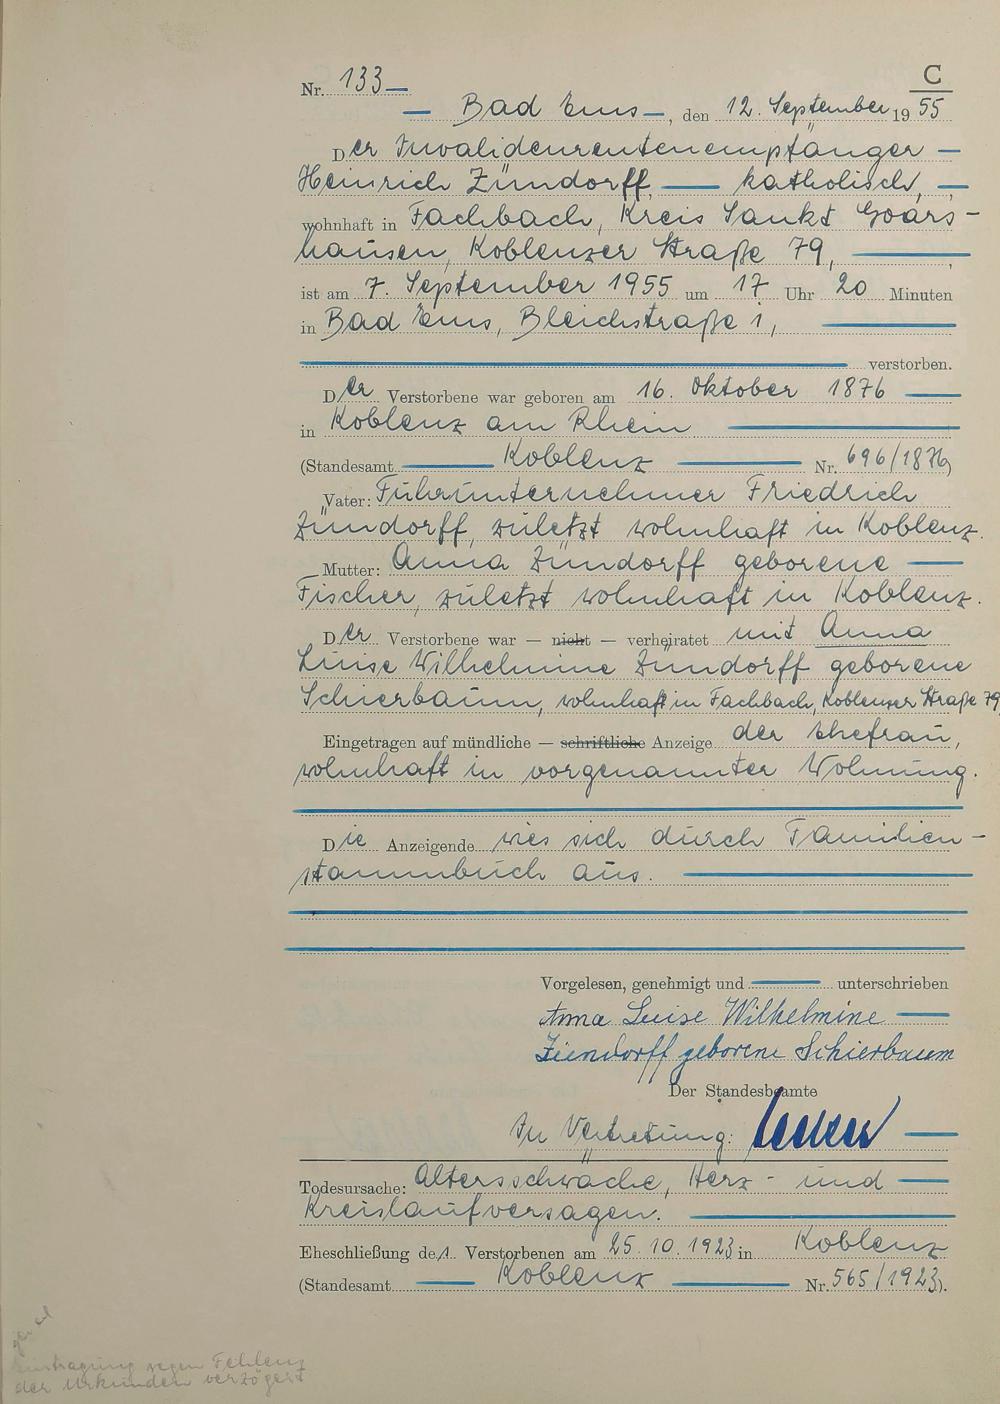 C
Nr. 133
Bad Ems, den 12. September 1955
Der Invalidenrentenempfänger
Heinrich Zündorff, katholisch,
wohnhaft in Fachbach, Kreis Sankt Goars-
hausen, Koblenzer Straße 79,
ist am 7. September 1955 um 17 Uhr 20 Minuten
in Bad Ems, Bleichstraße 1,
verstorben.
Der Verstorbene war geboren am 16. Oktober 1876
in Koblenz am Rhein
(Standesamt Koblenz Nr. 696/1876)
Vater: Fuhrunternehmer Friedrich
Zündorff, zuletzt wohnhaft in Koblenz.
Mutter: Anna Zündorff geborene
Fischer, zuletzt wohnhaft in Koblenz.
Der Verstorbene war — nicht — verheiratet mit Anna
Luise Wilhelmine Zündorff geborene
Schierbaum, wohnhaft in Fachbach, Koblenzer Straße 79
Eingetragen auf mündliche — schriftliche Anzeige der Ehefrau,
wohnhaft in vorgenannter Wohnung.
Die Anzeigende wies sich durch Familien-
stammbuch aus.
Vorgelesen, genehmigt und unterschrieben
Anna Luise Wilhelmine
Zündorff geborene Schierbaum
Der Standesbeamte
In Vertretung:
Todesursache: Altersschwäche, Herz- und
Kreislaufversagen.
Eheschließung des Verstorbenen am 25.10.1923 in Koblenz
(Standesamt Koblenz Nr. 565/1923).
Eintragung wegen Fehlens
der Urkunden verzögert